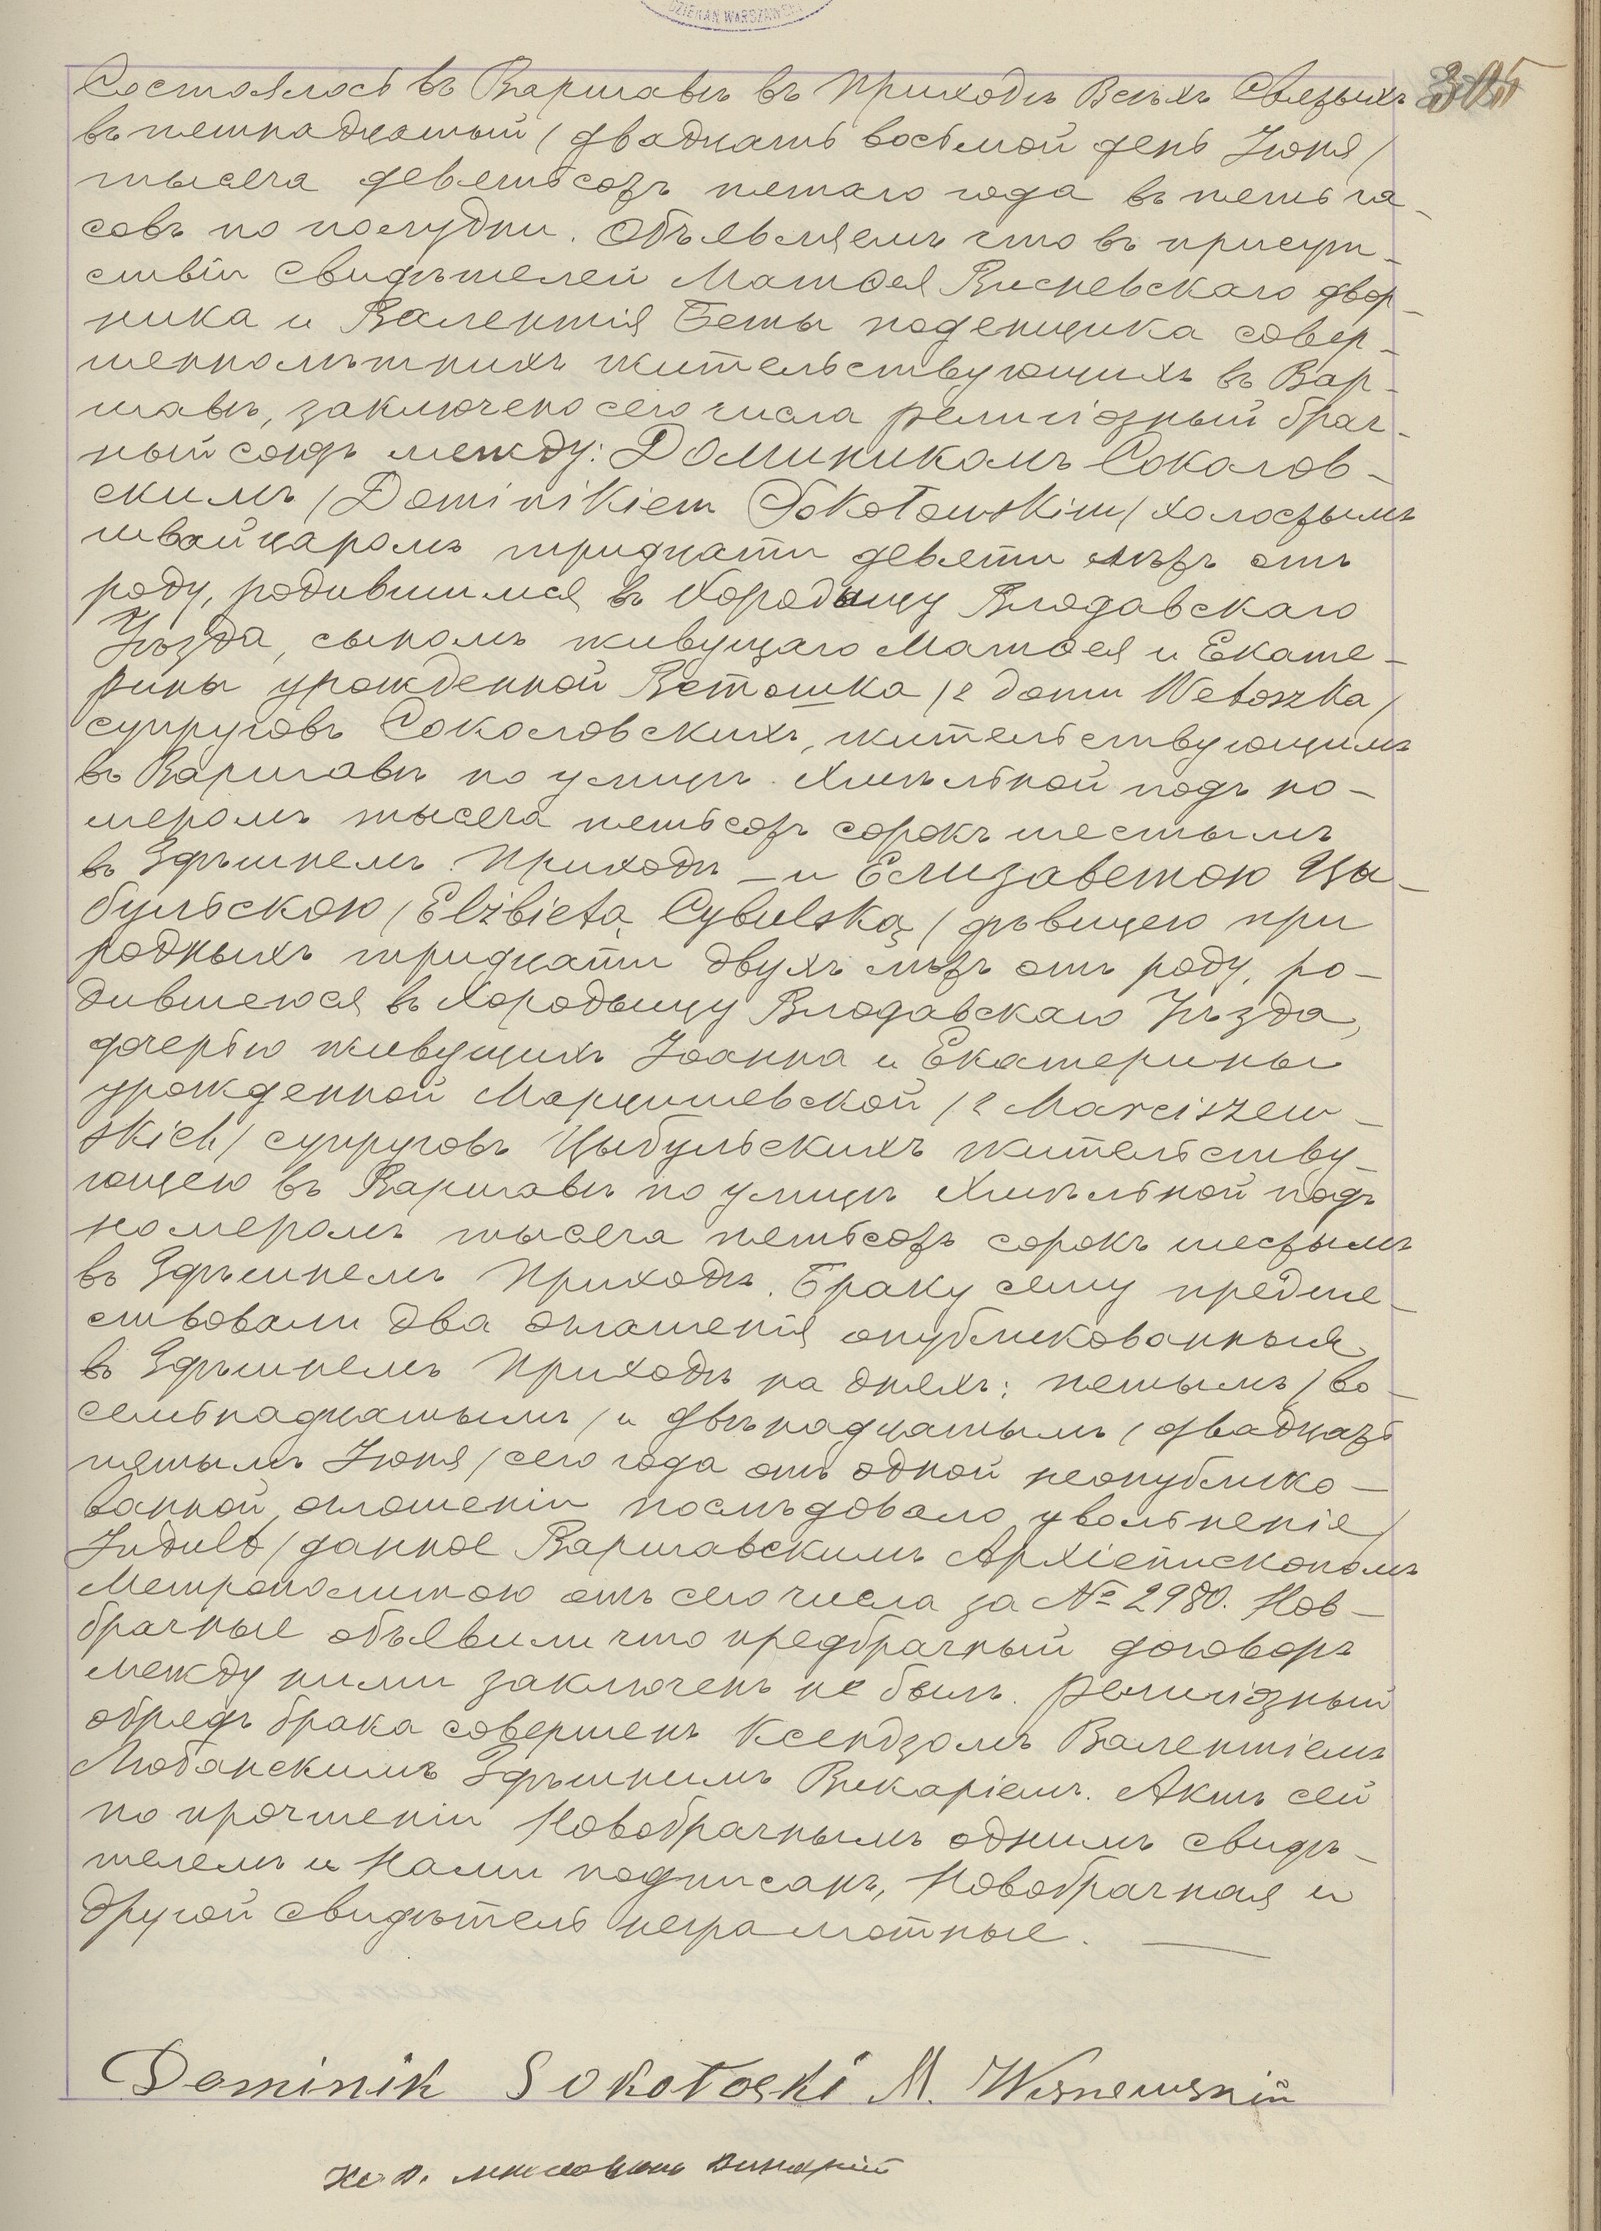 DZIEKAN WARSZAWSKI
305
Состоялось въ Варшавѣ въ Приходѣ Всѣхъ Святыхъ
въ пятнадцатый (двадцать восьмой день Іюня)
тысяча девятьсотъ пятаго года въ пять ча-
совъ по полудни. Объявляемъ что въ присут-
ствіи свидѣтелей Матѳея Висневскаго двор-
ника и Валентія Беты поденщика совер-
шеннолѣтнихъ жительствующихъ въ Вар-
шавѣ, заключено сего числа религіозный брач-
ный союзъ между: Доминикомъ Соколов-
скимъ (Dominikiem Sokołowskim) холостымъ
швайцаромъ тридцати девяти лѣтъ отъ
роду, родившимся въ Хородыщу Влодавскаго
Уѣзда, сыномъ живущаго Матѳея и Екате-
рины урожденной Ветошка (z domu Wetoszka)
супруговъ Соколовскихъ, жительствующимъ
въ Варшавѣ по улицѣ Хмѣльной подъ но-
меромъ тысяча пятьсотъ сорокъ шестымъ
въ Здѣшнемъ Приходѣ — и Елизаветою Цы-
бульскою (Elżbietą Cybulską) дѣвицею при
родныхъ тридцати двухъ лѣтъ отъ роду, ро-
дившеюся въ Хородыщу Влодавскаго Уѣзда,
дочерью живущихъ Іоанна и Екатерины
урожденной Марцишевской (z Marciszew-
skich) супруговъ Цыбульскихъ жительству-
ющею въ Варшавѣ по улицѣ Хмѣльной подъ
номеромъ тысяча пятьсотъ сорокъ шестымъ
въ Здѣшнемъ Приходѣ. Браку сему предше-
ствовали два оглашенія опубликованныя
въ Здѣшнемъ Приходѣ на дняхъ: пятымъ (во-
семьнадцатымъ) и двѣнадцатымъ (двадцать
пятымъ Іюня) сего года отъ одной неопублико-
ванной оглошеніи послѣдовало увольненіе (
Indult) данное Варшавскимъ Архіепископомъ
Метрополитою отъ сего числа за № 2980. Нов-
брачные объявили что предбрачный договоръ
между ними заключенъ не былъ. Религіозный
обрядъ брака совершенъ Ксендзомъ Валентіемъ
Любанскимъ Здѣшнимъ Викаріемъ. Актъ сей
по прочтеніи Новобрачнымъ однимъ свидѣ-
телемъ и Нами подписанъ, Новобрачная и
другой свидѣтель неграмотные. —
Dominik Sokołoski M. Wisnewskiй